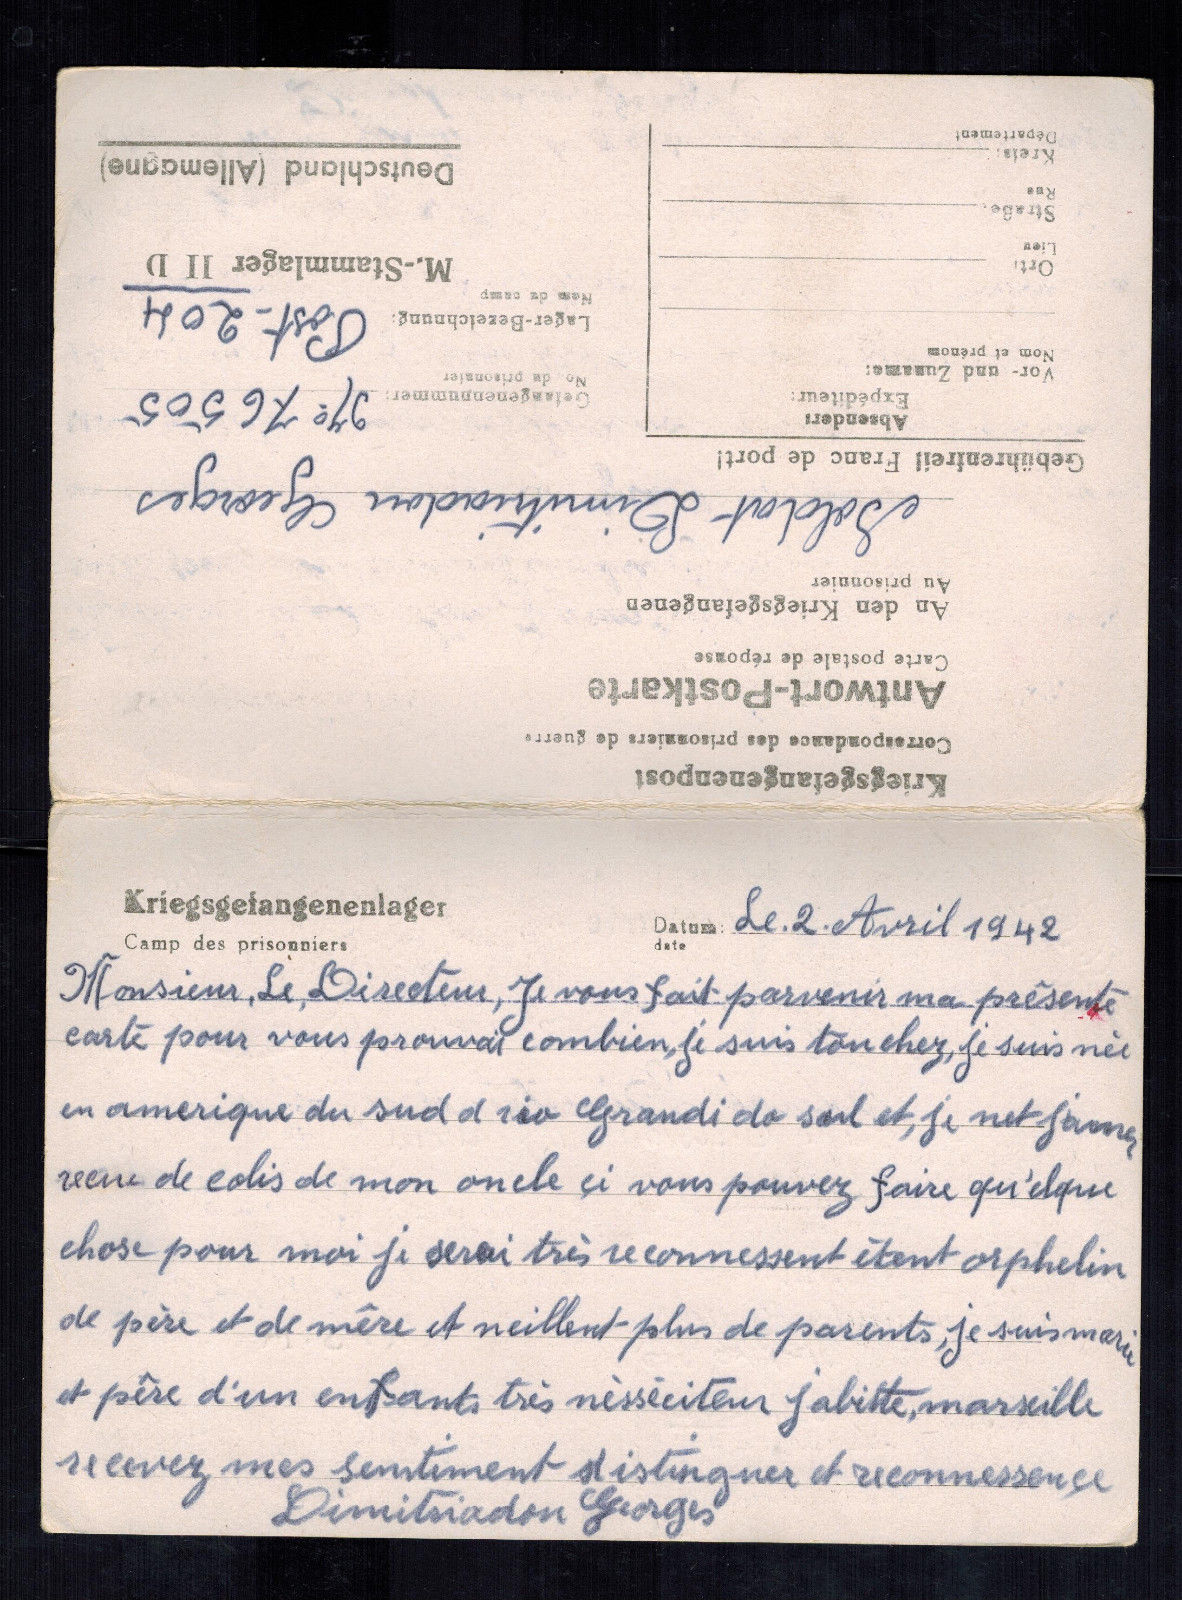 Kriegsgefangenenpost
Correspondance des prisonniers de guerre
Antwort-Postkarte
Carte postale de réponse
An den Kriegsgefangenen
Au prisonnier
Soldat Dimitriadou Georges
Gebührenfrei! Franc de port!
Absender:
Expéditeur:
Vor- und Zuname:
Nom et prénom
Ort:
Lieu
Straße:
Rue
Kreis:
Département
Gefangenennummer: No 76505
No. du prisonnier
Lager-Bezeichnung: Post-204
Nom du camp
M.-Stammlager II D
Deutschland (Allemagne)
Kriegsgefangenenlager
Camp des prisonniers
Datum: Le. 2. Avril 1942
date
Monsieur, Le, Directeur, Je vous fait parvenir ma présente
carte pour vous prouvai combien, je suis touchez, je suis née
en amerique du sud d rio Grandi do sul et, je net jamez
recue de colis de mon oncle çi vous pouvez faire qu'elque
chose pour moi je serai très reconnessent étent orphelin
de père et de mêre et neillent plus de parents, je suis marie
et pêre d'un enfsants très nèssèciteur jabitte, marseille
recevez mes sentiment distinguer et reconnessençe
Dimitriadou Georges